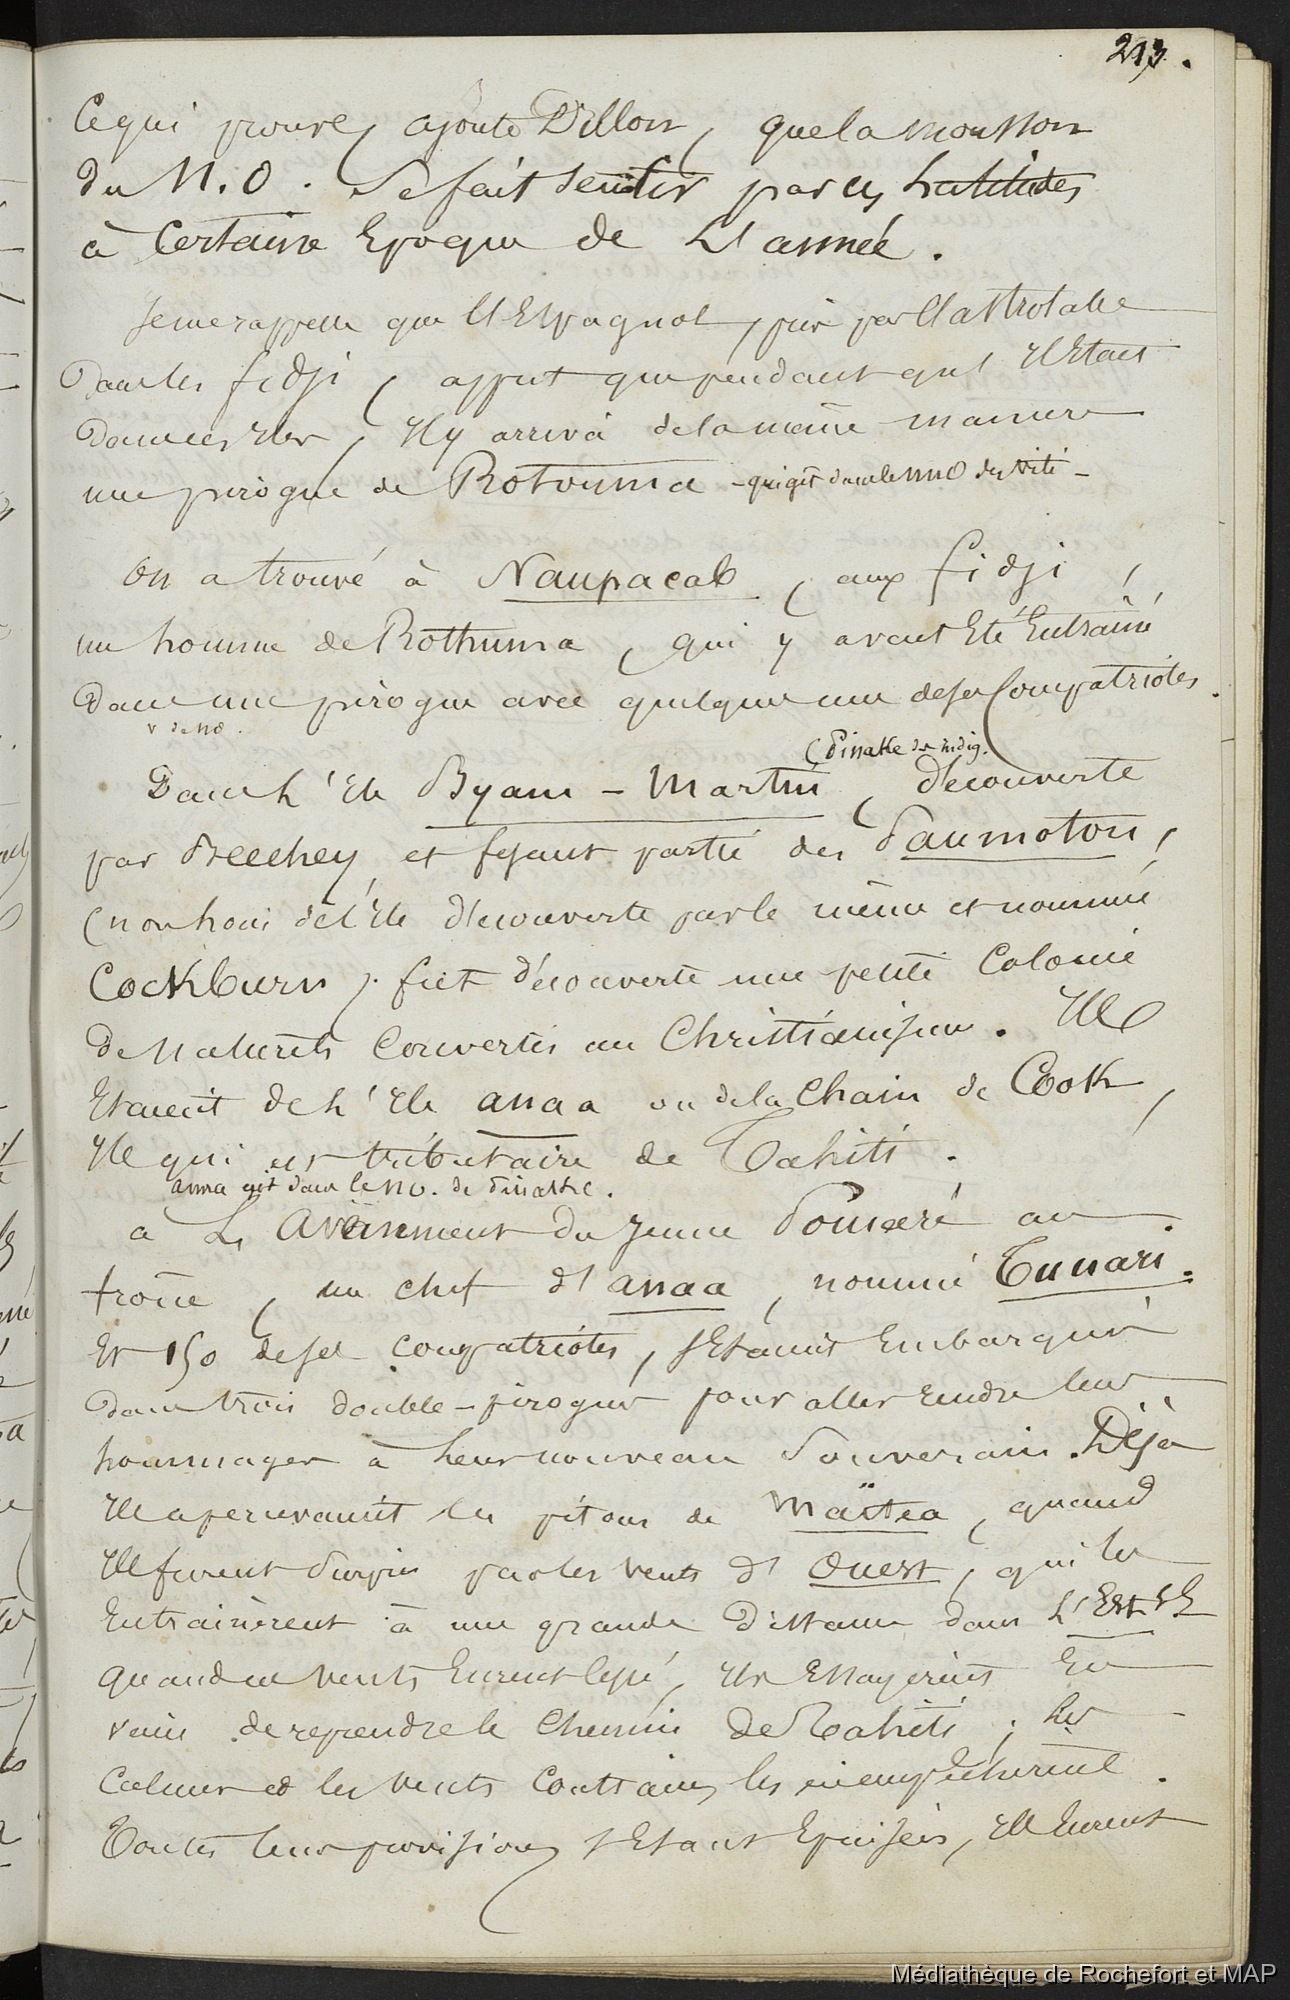 213.
Ce qui prouve, ajoute Dillon, que la mousson
du N.O. se fait sentir par ces latitudes
à certaine Epoque de L'année.
Je me rappelle que l'Espagnol, pris par l'astrolabe
Dans les fidji, apprit que pendant qu'il Etait
Dans ces iles, il y arriva de la même manière
une pirogue de Rotouma - qui gît dans le NNO des Viti -
On a trouvé à Naupacab, aux fidji,
un homme de Rothuma, qui y avait Eté Entrainé
Dans une pirogue avec quelques uns de ses Compatriotes.
v de NO.
(Dinake des indig.
Dans L'ile Byam - Martin, découverte
par Beechey et fesant partie des Paumotou,
(non loin de l'ile découverte par le même et nommée
Cockburn). fut découverte une petite Colonie
De Naturels Convertis au Christianisme. Ils
Etaient de L'ile anaa ou de la Chain de Cook,
Ile qui est tributaire de Tahiti.
anaa gît dans le NO. de Dinake.
a L'Avènement du Jeune Pomaré au
trône, un chef d'anaa, nommé Tunari.
Et 150 de ses compatriotes, s'Etaient Embarqués
dans trois double-pirogues pour aller rendre leurs
hommages à Leur nouveau Souverain. Déja
Ils apercevaient les pitons de Maïtea, quand
Ils furent Surpris par les vents d'Ouest, qui les
Entrainèrent à une grande Distance dans L'Est SE
Quand ces vents Eurent cessé, ils Essayèrent En
vain de reprendre le Chemin De Tahiti; Les
Calmes et les vents Contraires les en empêchèrent.
Toutes leurs provisions s'Etant Epuisées, ils Eurent
Médiathèque de Rochefort et MAP